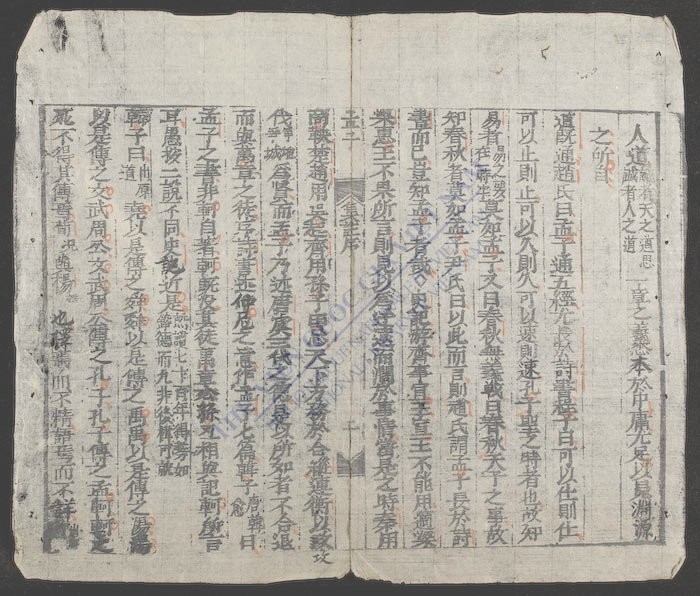 人道誠者天之道思誠者人之道一章之義悉本於中庸尤足以見淵源
之所自
道既通趙氏曰孟子通五經尤長於詩書程子曰可以仕則仕
可以止則止可以久則久可以速則速孔子聖之時者也故知
易者莫如孟子又曰春秋無義戰曰春秋天子之事故
知春秋者莫如孟子尹氏曰以此而言則趙氏謂孟子長於詩
書而已豈知孟子者哉○史記游事齊宣王宣王不能用適梁
梁惠王不果所言則見以為迂遠而濶於事情當是之時秦用
孟子 集註序 二
商鞅楚魏用吳起齊用孫子田忌天下方務於合從連衡以攻
伐為賢而孟子乃述唐虞三代之德是以所如者不合退
而與萬章之徒序詩書述仲尼之意作孟子七篇韓子唐韓愈曰
孟子之書非軻自著軻既歿其徒萬章公孫丑相與記軻所言
耳愚按二說不同史記近是
韓子曰出原道堯以是傳之舜舜以是傳之禹禹以是傳之湯湯
以是傳之文武周公文武周公傳之孔子孔子傳之孟軻軻之
死不得其傳焉荀況與揚也擇焉而不精語焉而不詳